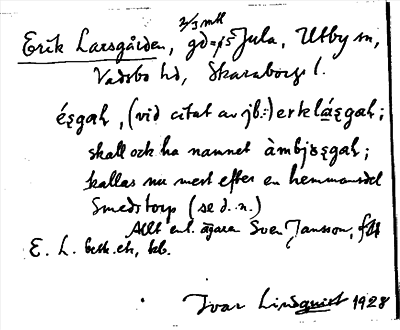 2/3 mtl
Erik Larsgården, gd på Jula, Utby sn,
Vadsbo hd, Skaraborgs l.
ę́ęgaʜ, (vid citat av jb.:) erkláęgaʜ;
skall ock ha namnet àmbjęgaʜ;
kallas nu mest efter en hemmansdel
Smedstorp (se d. n.)
Allt enl. ägaren Sven Jansson, f.
E. L. beck. eh, kb.
Ivar Lindquist 1928